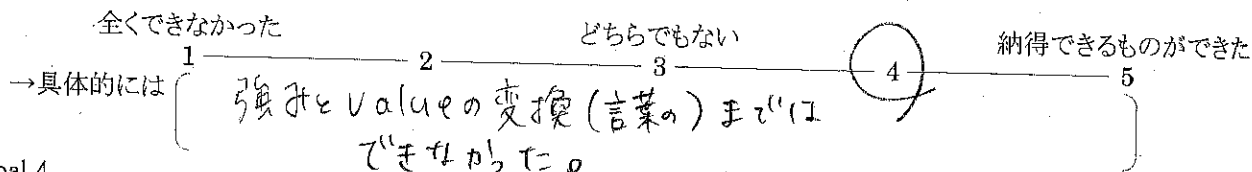 全くできなかった どちらでもない 納得できるものができた
1 2 3 4 5
→具体的には 強みとvalueの変換(言葉の)までは
できなかった。